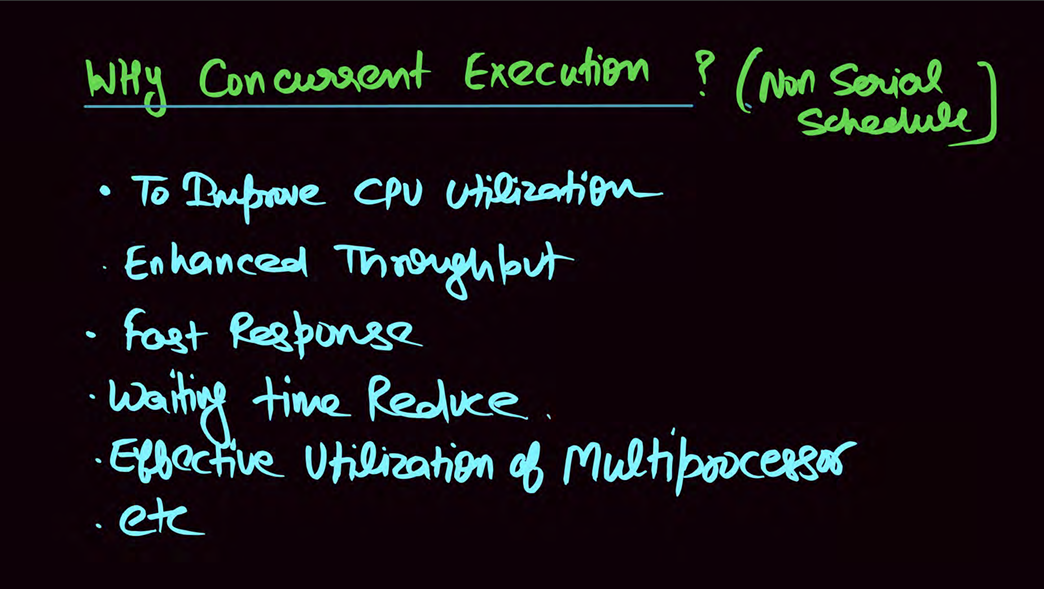 WHy Concurrent Execution ? (Non Serial Schedule)
• To Improve CPU Utilization
• Enhanced Throughput
• Fast Response
• Waiting time Reduce.
• Effective Utilization of Multiprocessor
• etc